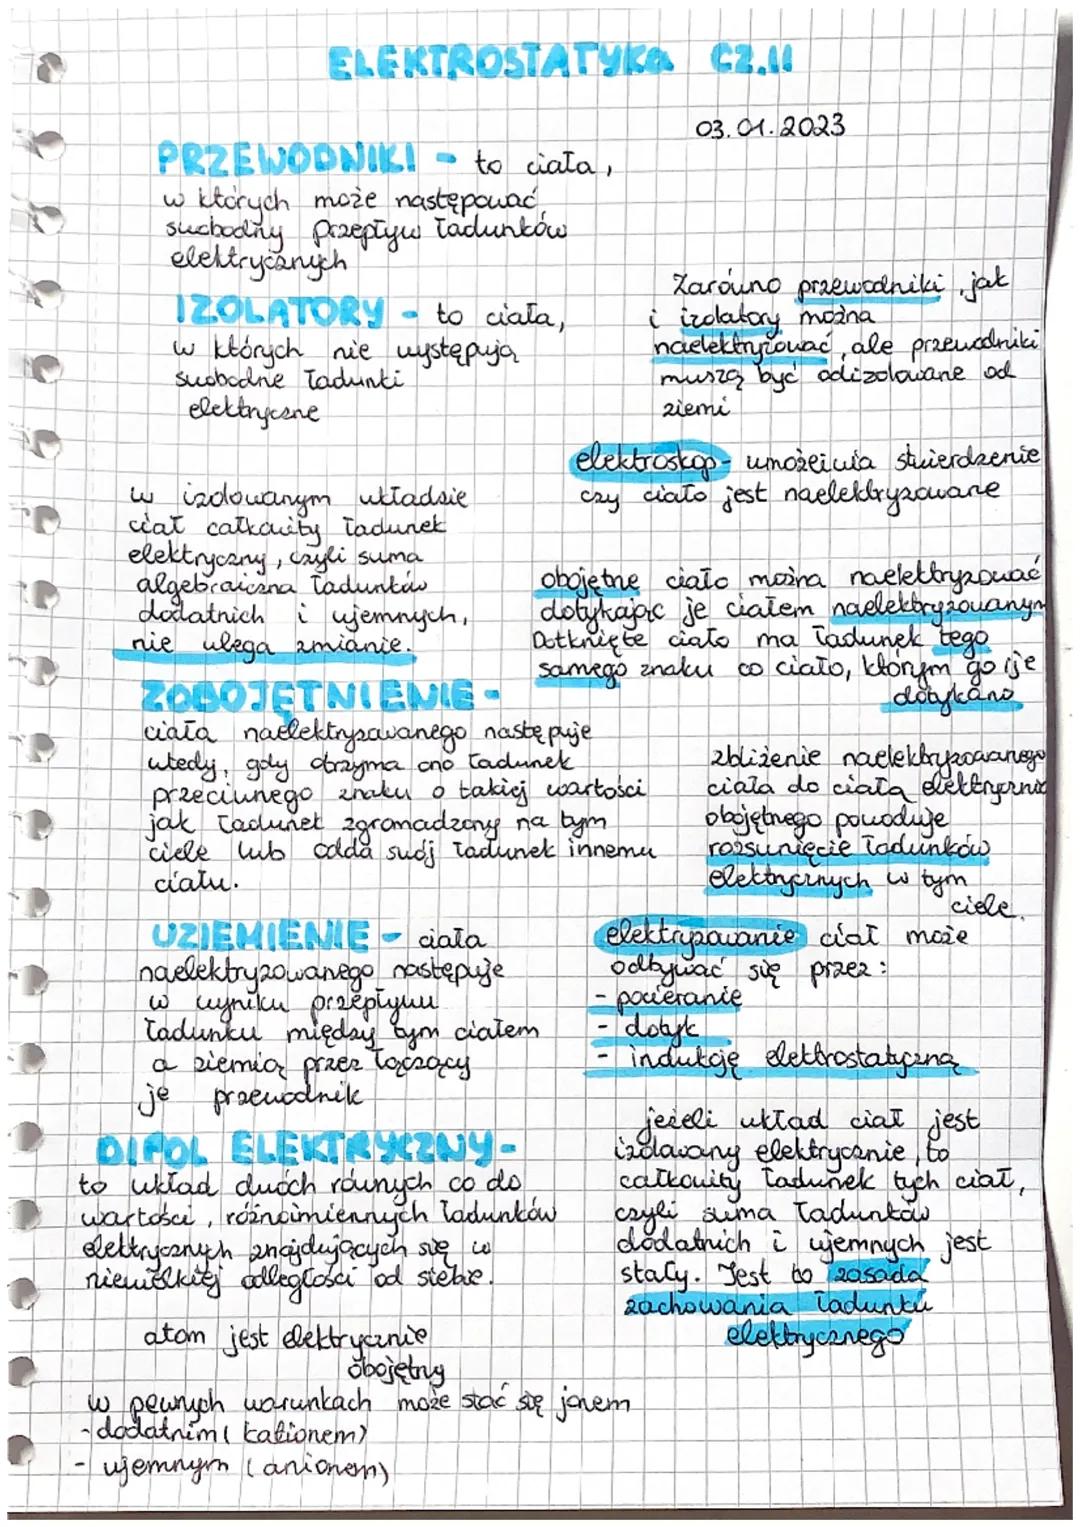 ELEKTROSTATYKA CZ.II
03.01.2023
PRZEWODNIKI - to ciała,
w których może następować
swobodny przepływ ładunków
elektrycznych
IZOLATORY - to ciała,
w których nie występują
swobodne ładunki
elektryczne
Zarówno przewodniki, jak
i izolatory można
naelektryzować, ale przewodniki
muszą być odizolowane od
ziemi
elektroskop - umożliwia stwierdzenie
czy ciało jest naelektryzowane
w izolowanym układzie
ciał całkowity ładunek
elektryczny, czyli suma
algebraiczna ładunków
dodatnich i ujemnych,
nie ulega zmianie.
obojętne ciało można naelektryzować
dotykając je ciałem naelektryzowanym
Dotknięte ciało ma ładunek tego
samego znaku co ciało, którym go/je
dotykano
ZOBOJĘTNIENIE -
ciała naelektryzowanego następuje
wtedy, gdy otrzyma ono ładunek
przeciwnego znaku o takiej wartości
jak ładunek zgromadzony na tym
ciele lub odda swój ładunek innemu
ciału.
zbliżenie naelektryzowanego
ciała do ciała elektrycznie
obojętnego powoduje
rozsunięcie ładunków
elektrycznych w tym
ciele.
UZIEMIENIE - ciała
naelektryzowanego następuje
w wyniku przepływu
ładunku między tym ciałem
a ziemią przez łączący
je przewodnik
elektryzowanie ciał może
odbywać się przez:
- pocieranie
- dotyk
- indukcję elektrostatyczną
DIPOL ELEKTRYCZNY -
to układ dwóch równych co do
wartości, różnoimiennych ładunków
elektrycznych znajdujących się w
niewielkiej odległości od siebie.
jeżeli układ ciał jest
izolowany elektrycznie, to
całkowity ładunek tych ciał,
czyli suma ładunków
dodatnich i ujemnych jest
stały. Jest to zasada
zachowania ładunku
elektrycznego
atom jest elektrycznie
obojętny
w pewnych warunkach może stać się jonem
- dodatnim (kationem)
- ujemnym (anionem)